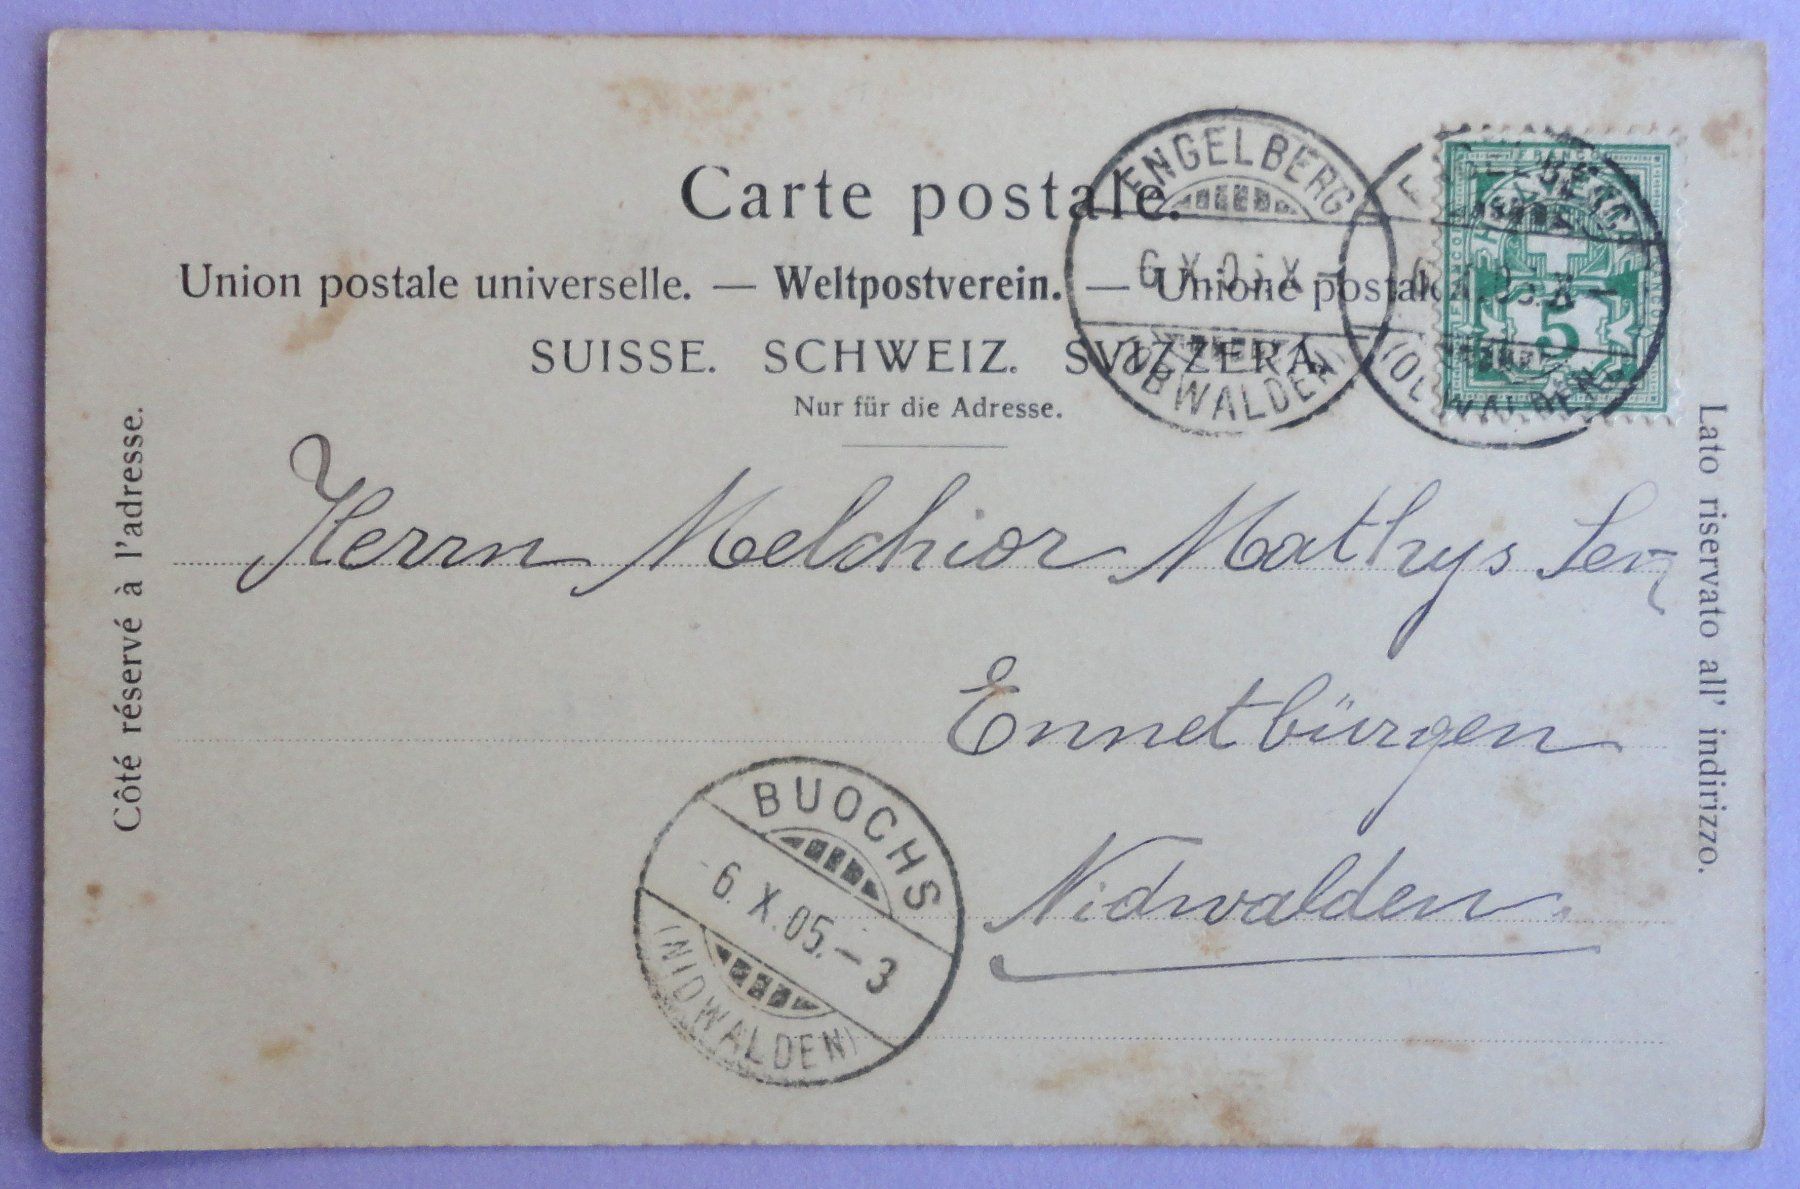 Carte postale.
Union postale universelle. — Weltpostverein. — Unione postale
SUISSE. SCHWEIZ. SVIZZERA.
Nur für die Adresse.
Côté réservé à l'adresse.
Lato riservato all' indirizzo.
ENGELBERG
6.X.05.X—
(OBWALDEN)
ENGELBERG
6.X.05.X—
(OBWALDEN)
FRANCO
5
Herrn Melchior Mathys Sen
Ennetbürgen
Nidwalden.
BUOCHS
-6.X.05.—3
(NIDWALDEN)